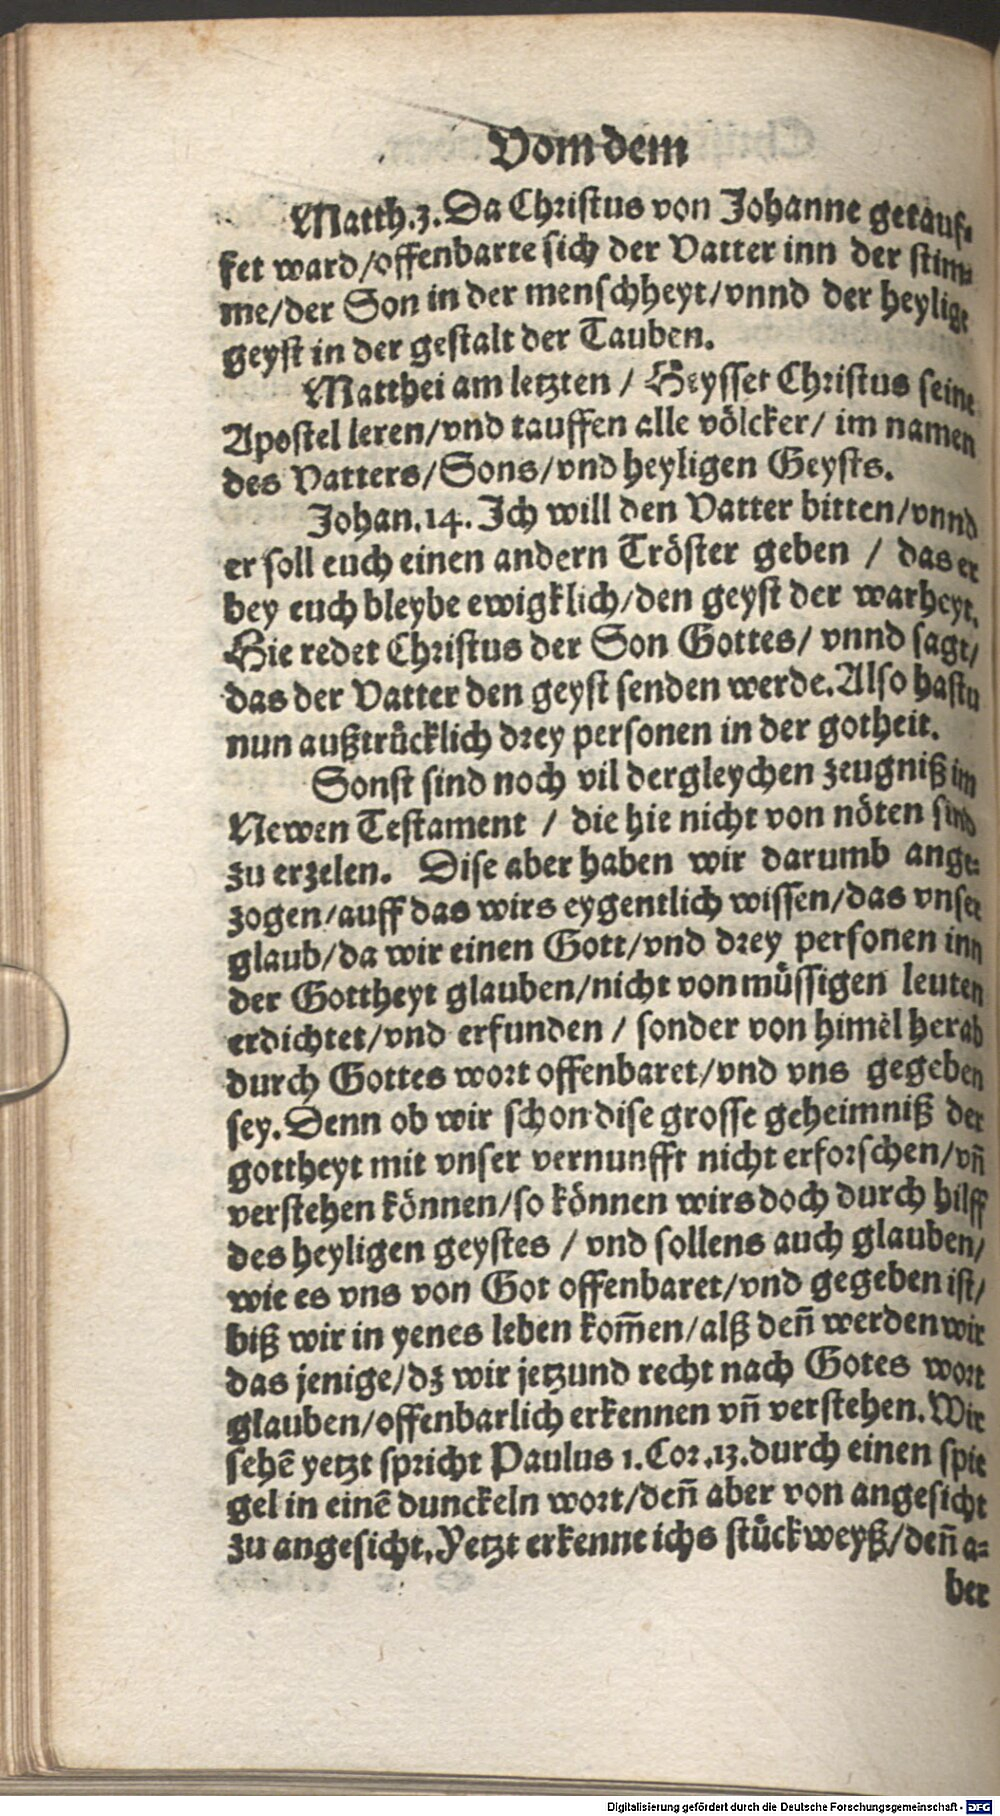 Vom dem
Matth.3. Da Christus von Johanne getauf-
fet ward/offenbarte sich der Vatter inn der stim-
me/der Son in der menschheyt/vnnd der heylige
geyst in der gestalt der Tauben.
Matthei am letzten / Heysset Christus seine
Apostel leren/vnd tauffen alle völcker/ im namen
des Vatters/Sons/vnd heyligen Geysts.
Johan.14. Ich will den Vatter bitten/vnnd
er soll euch einen andern Tröster geben / das er
bey euch bleybe ewigklich/den geyst der warheyt.
Hie redet Christus der Son Gottes/ vnnd sagt/
das der Vatter den geyst senden werde. Also hastu
nun außtrücklich drey personen in der gotheit.
Sonst sind noch vil dergleychen zeugniß im
Newen Testament / die hie nicht von nöten sind
zu erzelen. Dise aber haben wir darumb ange-
zogen/auff das wirs eygentlich wissen/das vnser
glaub/da wir einen Gott/vnd drey personen inn
der Gottheyt glauben/nicht von müssigen leuten
erdichtet/vnd erfunden / sonder von himēl herab
durch Gottes wort offenbaret/vnd vns gegeben
sey. Denn ob wir schon dise grosse geheimniß der
gottheyt mit vnser vernunfft nicht erforschen/vñ
verstehen können/so können wirs doch durch hilff
des heyligen geystes / vnd sollens auch glauben/
wie es vns von Got offenbaret/vnd gegeben ist/
biß wir in yenes leben kom̃en/alß deñ werden wir
das jenige/dz wir jetzund recht nach Gotes wort
glauben/offenbarlich erkennen vñ verstehen. Wir
sehē yetzt spricht Paulus 1. Cor.13. durch einen spie
gel in einē dunckeln wort/deñ aber von angesicht
zu angesicht. Yetzt erkenne ichs stückweyß/deñ a-
ber
Digitalisierung gefördert durch die Deutsche Forschungsgemeinschaft - DFG